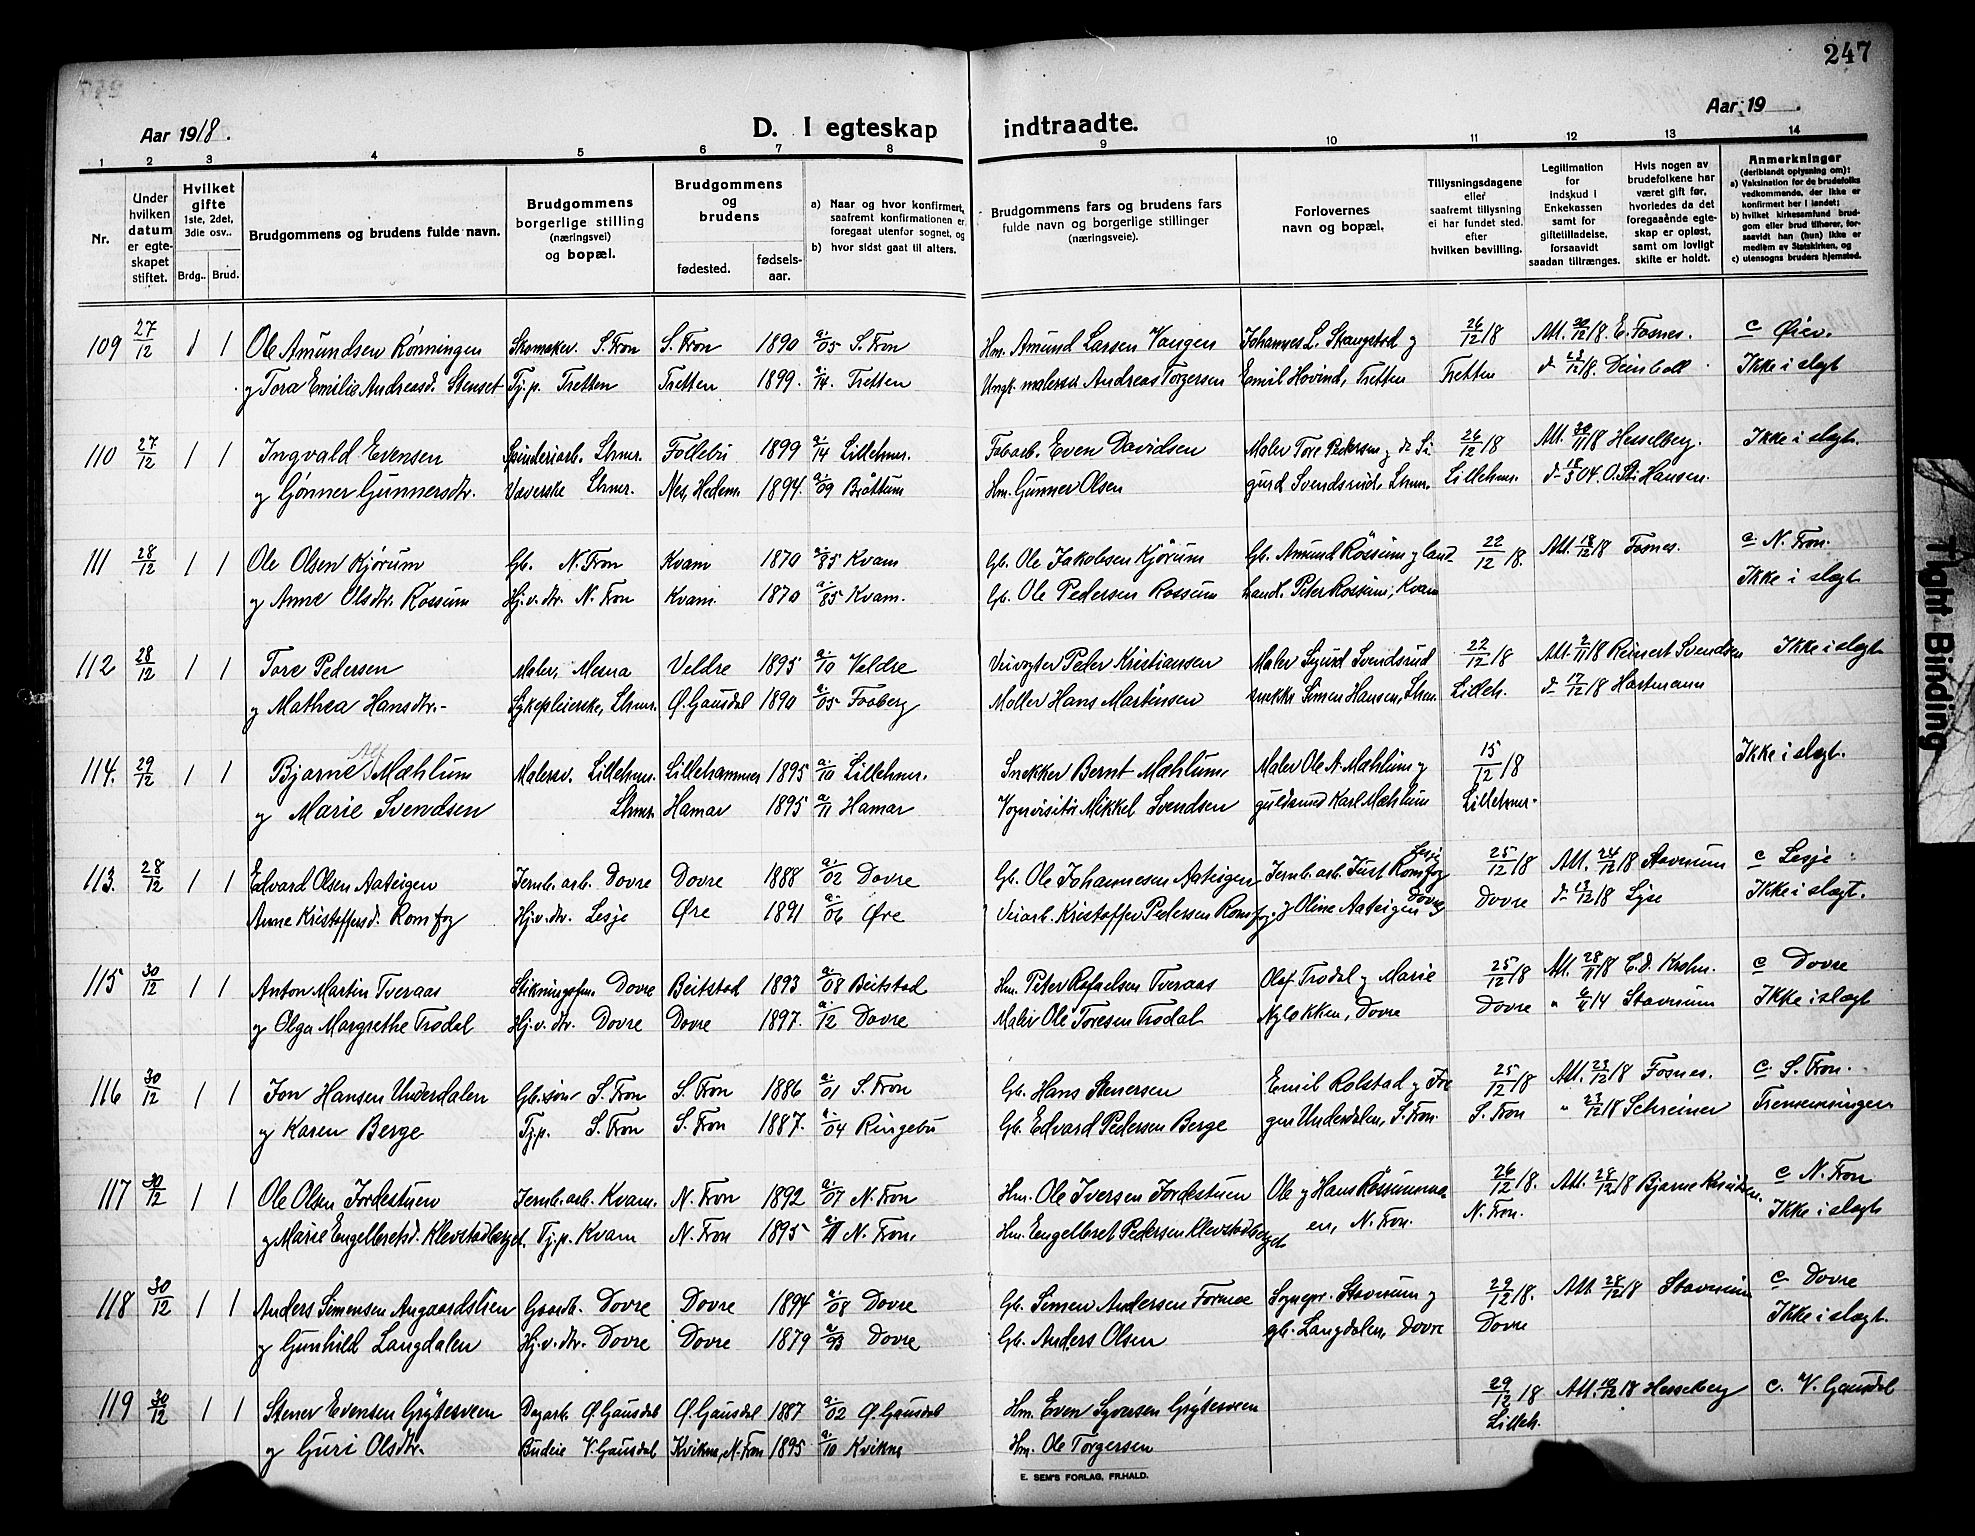 247
Aar 1918.
D. I egteskap
indtraadte.
Aar 19
1 2 3 4 5 6 7 8 9 10 11 12 13 14
Nr.
Under hvilken datum er egteskapet stiftet.
Hvilket gifte 1ste, 2det, 3die osv..
Brdg.. Brud.
Brudgommens og brudens fulde navn.
Brudgommens borgerlige stilling (næringsvei) og bopæl.
Brudgommens og brudens
fødested.
fødselsaar.
a) Naar og hvor konfirmert, saafremt konfirmationen er foregaat utenfor sognet, og
b) hvor sidst gaat til alters.
Brudgommens fars og brudens fars fulde navn og borgerlige stillinger (næringsveie).
Forlovernes navn og bopæl,
Tillysningsdagene eller saafremt tillysning ei har fundet sted. efter hvilken bevilling.
Legitimation for indskud i Enkekassen samt for giftetilladelse, forsaavidt saadan tiltrænges.
Hvis nogen av brudefolkene har været gift før, hvorledes da det foregaaende egteskap er opløst, samt om lovligt skifte er holdt.
Anmerkninger (deriblandt oplysning om):
a) Vaksination for de brudefolks vedkommende, der ikke er konfirmert her i landet;
b) hvilket kirkesamfund brudgom eller brud tilhører, forsaavidt han (hun) ikke er medlem av Statskirken, og
c) utensogns bruders hjemsted.
109 27/12 1 1 Ole Amundsen Rønningen Skomaker. S. Fron S. Fron 1890 a. 05 S. Fron Hm. Amund Larsen Vangen Johannes L. Stangstad og 26/12 18 Att. 20/12 18. E. Fosnes. c Øier.
og Tora Emilie Andreasd. Stenset Tj.p. Tretten Tretten 1899. a. 14. Tretten malersv. Andreas Torgersen Emil Hovind, Tretten Tretten d- 23/12 18. Deinboll Ikke i slegt
110 27/12 1 1 Ingvald Evensen Spinderiarb. Lhmr. Follebu 1899 a. 14 Lillehmr. Fabarb. Even Davidsen Maler Tore Pedersen og do Si 26/12 18 Att. 30/11 18 Hesselberg. Ikke i slegt.
og Gønner Gunnersdtr. Væverske Lhmr. Nes, Hedem 1894. a. 09 Brøttum Hm. Gunner Olsen gurd Svendsrud, Lhmr. Lillehmr. d- 18/5 04. O. St. Hansen.
111 28/12 1 1 Ole Olsen Kjørum Gb. N. Fron Kvam 1870 a. 85 Kvam Gb. Ole Jakobsen Kjörum Gb. Amund Røssum og land- 22/12 18. Att. 18/12 18 Fosnes. c. N. Fron.
og Anne Olsdtr. Rossum Hj.v. dtr. N. Fron Kvam. 1870 a. 85 Kvam. Gb. Ole Pedersen Rossum hand. Peter Rossum, Kvam Ikke i slegt
112 28/12 1 1 Tore Pedersen Maler, Mesna Veldre 1895 a. 10 Veldre Veivogter Peter Kristiansen Maler Sigurd Svendsrud 22/12 18 Att. 2/11 18 Reinert Svendsen Ikke i slegt
og Mathea Hansdtr. Sykepleierske, Lhmr. Ø. Gausdal 1890 a. 05 Faaberg Møller Hans Martinsen snekker Simen Hansen, Lhmr. Lilleh. d- 17/12 18 Hartmann
114. 29/12 1 1 Bjarne Mæhlum Malersv. Lillehmr. Lillehammer 1895 a. 10 Lillehmr. Snekker Bernt Mæhlum, Maler Ole A. Mæhlum og 15/12 18 Ikke i slegt.
og Marie Svendsen Lhmr. Hamar 1895 a. 11 Hamar Vognvisitør Mikkel Svendsen guldsmed Karl Mæhlum Lillehmr.
113. 28/12 1 1 Edvard Olsen Aateigen Jernb.arb. Dovre Dovre 1888 a. 02 Dovre Gb. Ole Johannesen Aateigen Jernb.arb. Just Romfog Lesje 25/12 18 Att. 24/12 18 Stavrum c Lesje
Anne Kristoffersd. Romfog Hj.v. dtr. Lesje Øre 1891 a. 06 Øre Veiarb. Kristoffer Pedersen Romfog. og Oline Aateigen Dovre Dovre d- 13/12 18 Lyse Ikke i slegt.
115 30/12 1 1 Anton Martin Tveraas Stikningsfm. Dovre Beitstad 1893 a. 08 Beitstad Hm. Peter Rafaelsen Tveraas Olaf Trodal og Marie 25/12 18 Att. 28/11 18 C. d. Krohn. c Dovre
og Olga Margrethe Trodal Hj.v. dtr. Dovre Dovre 1897. a. 12 Dovre Maler Ole Toresen Trodal Nyløkken, Dovre Dovre " 14 Stavrum Ikke i slegt
116 30/12 1 1 Jon Hansen Underdalen Gb.sön S. Fron S. Fron 1886 a. 01 S. Fron Gb. Hans Stenersen Emil Rolstad og Tor 25/12 18 Att. 23/12 18 Fosnes. c. S. Fron.
og Karen Berge Tj.p. S. Fron S. Fron 1887. a. 04 Ringebu Gb. Edvard Pedersen Berge ger Underdalen, S. Fron. S. Fron " 23/12 18 Schreiner Tremenninger
117 30/12 1 1 Ole Olsen Jordestuen Jernb.arb. Kvam. N. Fron 1892 a. 07 N. Fron Hm. Ole Iversen Jordestuen Ole og Hans Røssummoa 26/12 18. Att. 28/12 18 Bjarne Knutsen. c N. Fron
og Marie Engelbretsd. Klevstadberget. Tj.p. Kvam N. Fron 1895 a. 11 N. Fron, Hm. Engelbret Pedersen Klevstadberget en, N. Fron. N. Fron. Ikke i slegt
118 30/12 1 1 Anders Simensen Angaardslien Gaardb. Dovre Dovre 1894 a. 08 Dovre Gb. Simen Andersen Formoe Sognepr. Stavrum og 29/12 18. Att. 28/12 18 Stavrum c Dovre
og Gunhild Langdalen Hj.v. dtr. Dovre Dovre 1879 a. 93 Dovre Gb. Anders Olsen gb. Langdalen, Dovre Dovre Ikke i slegt.
119 30/12 1 1 Stener Evensen Grytesveen Dagarb. Ø. Gausdal Ø. Gausdal 1887 a. 02 Ø. Gausdal Hm. Even Syversen Grytesveen 29/12 18 Att. 10/12 18 Hesselberg c. V. Gausdal
og Guri Olsdtr. Budeie V. Gausdal Kvikne, N. Fron 1895 a. 10 Kvikne Hm. Ole Torgersen Lilleh.
E. SEM'S FORLAG, FR.HALD.
Tight Binding